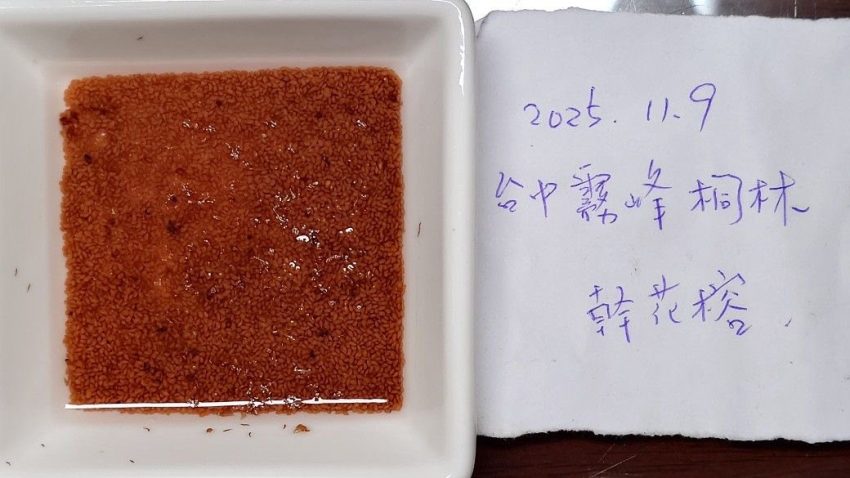 2025.11.9
台中霧峰桐林
幹花榕.